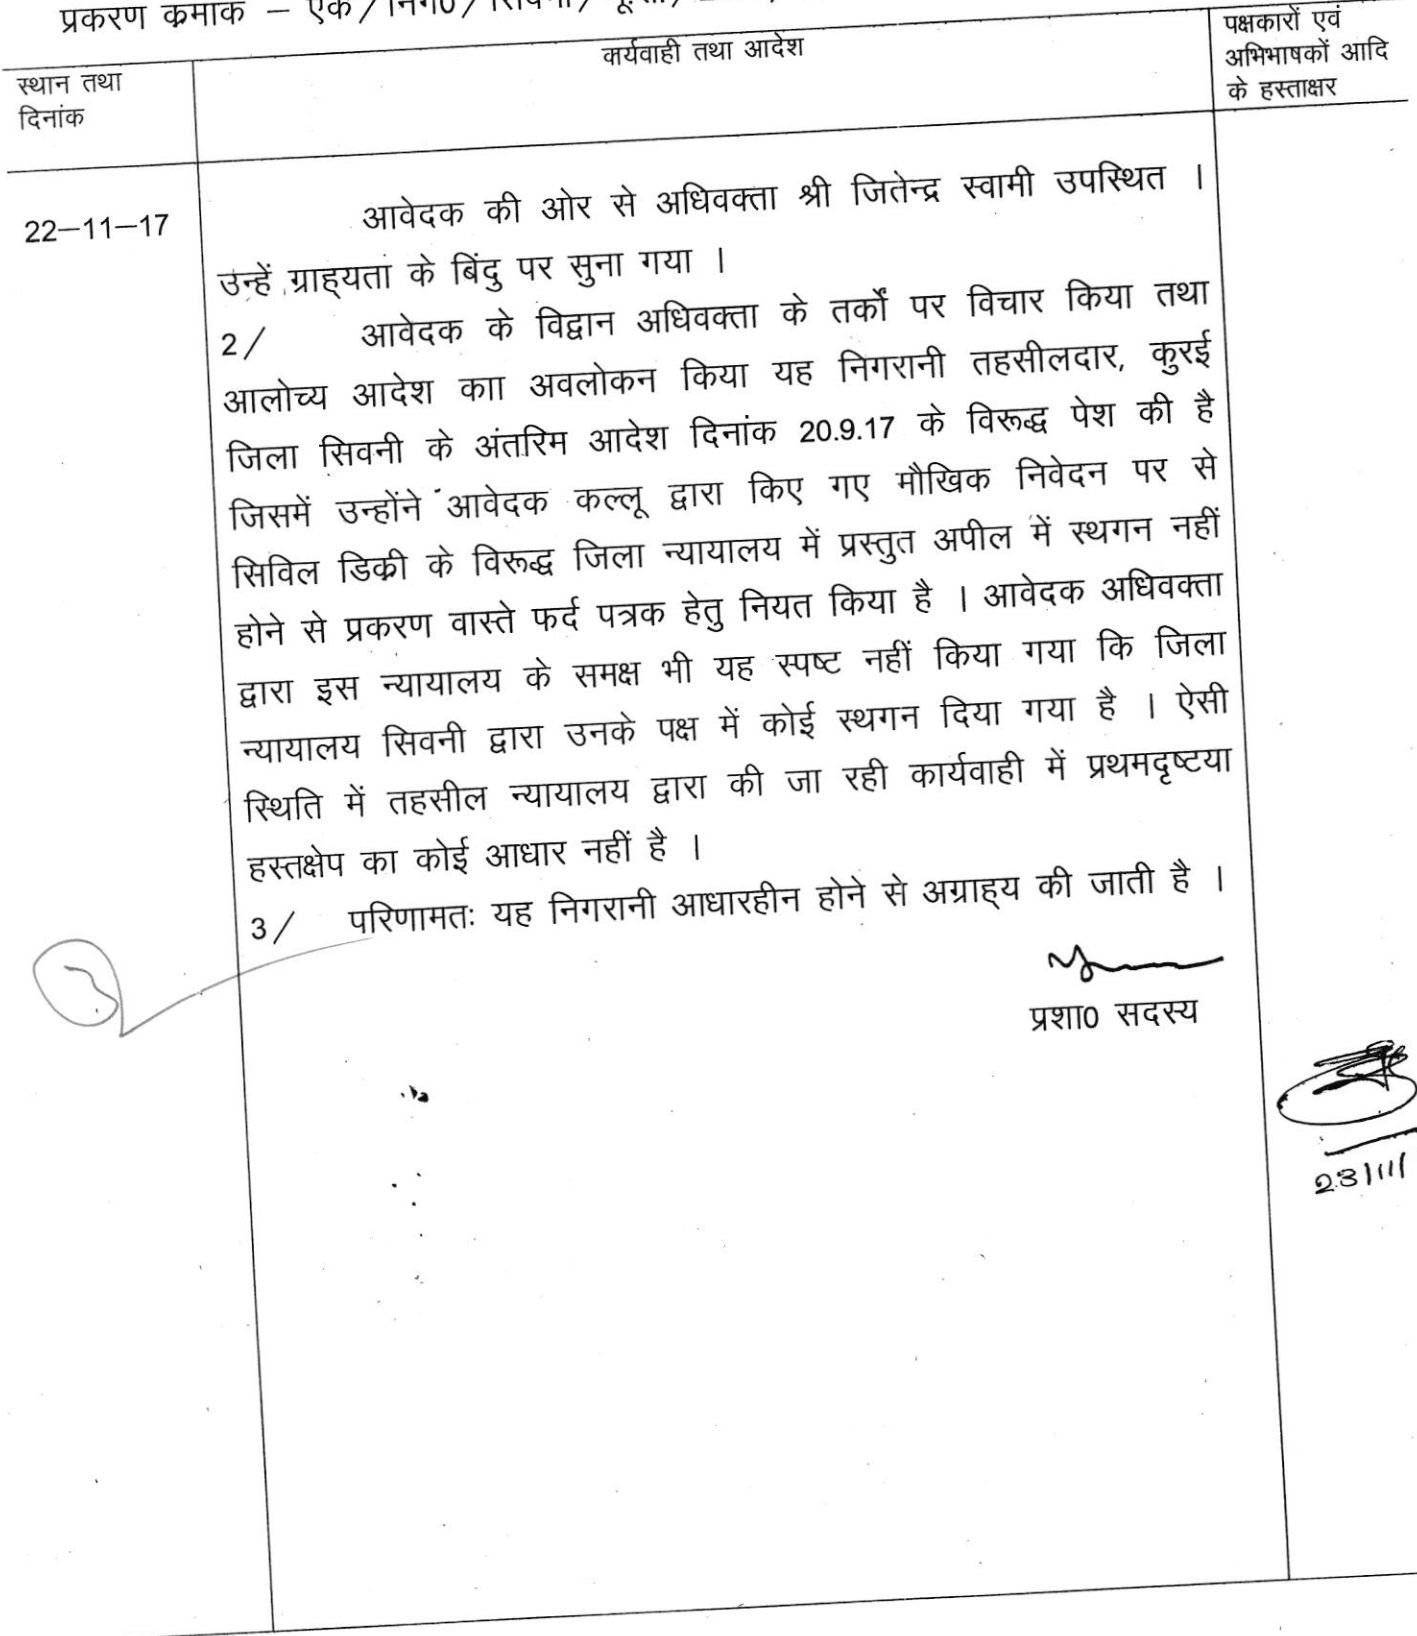 प्रकरण क्रमांक – एक / निग0 / सिवनी /
स्थान तथा
दिनांक
कार्यवाही तथा आदेश
पक्षकारों एवं
अभिभाषकों आदि
के हस्ताक्षर
22–11–17
आवेदक की ओर से अधिवक्ता श्री जितेन्द्र स्वामी उपस्थित ।
उन्हें ग्राह्यता के बिंदु पर सुना गया ।
2/ आवेदक के विद्वान अधिवक्ता के तर्कों पर विचार किया तथा
आलोच्य आदेश काा अवलोकन किया यह निगरानी तहसीलदार, कुरई
जिला सिवनी के अंतरिम आदेश दिनांक 20.9.17 के विरूद्ध पेश की है
जिसमें उन्होंने आवेदक कल्लू द्वारा किए गए मौखिक निवेदन पर से
सिविल डिक्री के विरूद्ध जिला न्यायालय में प्रस्तुत अपील में स्थगन नहीं
होने से प्रकरण वास्ते फर्द पत्रक हेतु नियत किया है । आवेदक अधिवक्ता
द्वारा इस न्यायालय के समक्ष भी यह स्पष्ट नहीं किया गया कि जिला
न्यायालय सिवनी द्वारा उनके पक्ष में कोई स्थगन दिया गया है । ऐसी
स्थिति में तहसील न्यायालय द्वारा की जा रही कार्यवाही में प्रथमदृष्टया
हस्तक्षेप का कोई आधार नहीं है ।
3/ परिणामतः यह निगरानी आधारहीन होने से अग्राह्य की जाती है ।
प्रशा0 सदस्य
23/11/